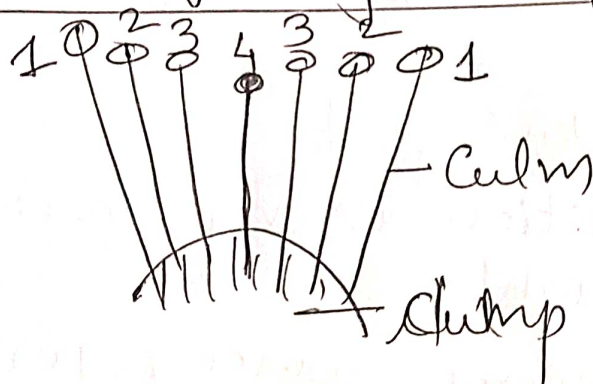 1 2 3 4 3 2 1
Culm
Clump